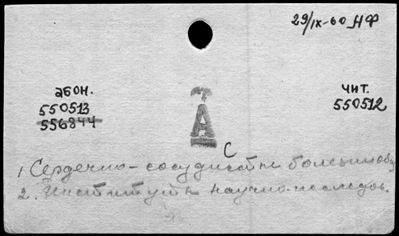 29/IX-60 НФ
абон.
550513
556844
чит.
550512
А
С
1. Сердечно-сосудист
2. Институты научно-исследов.